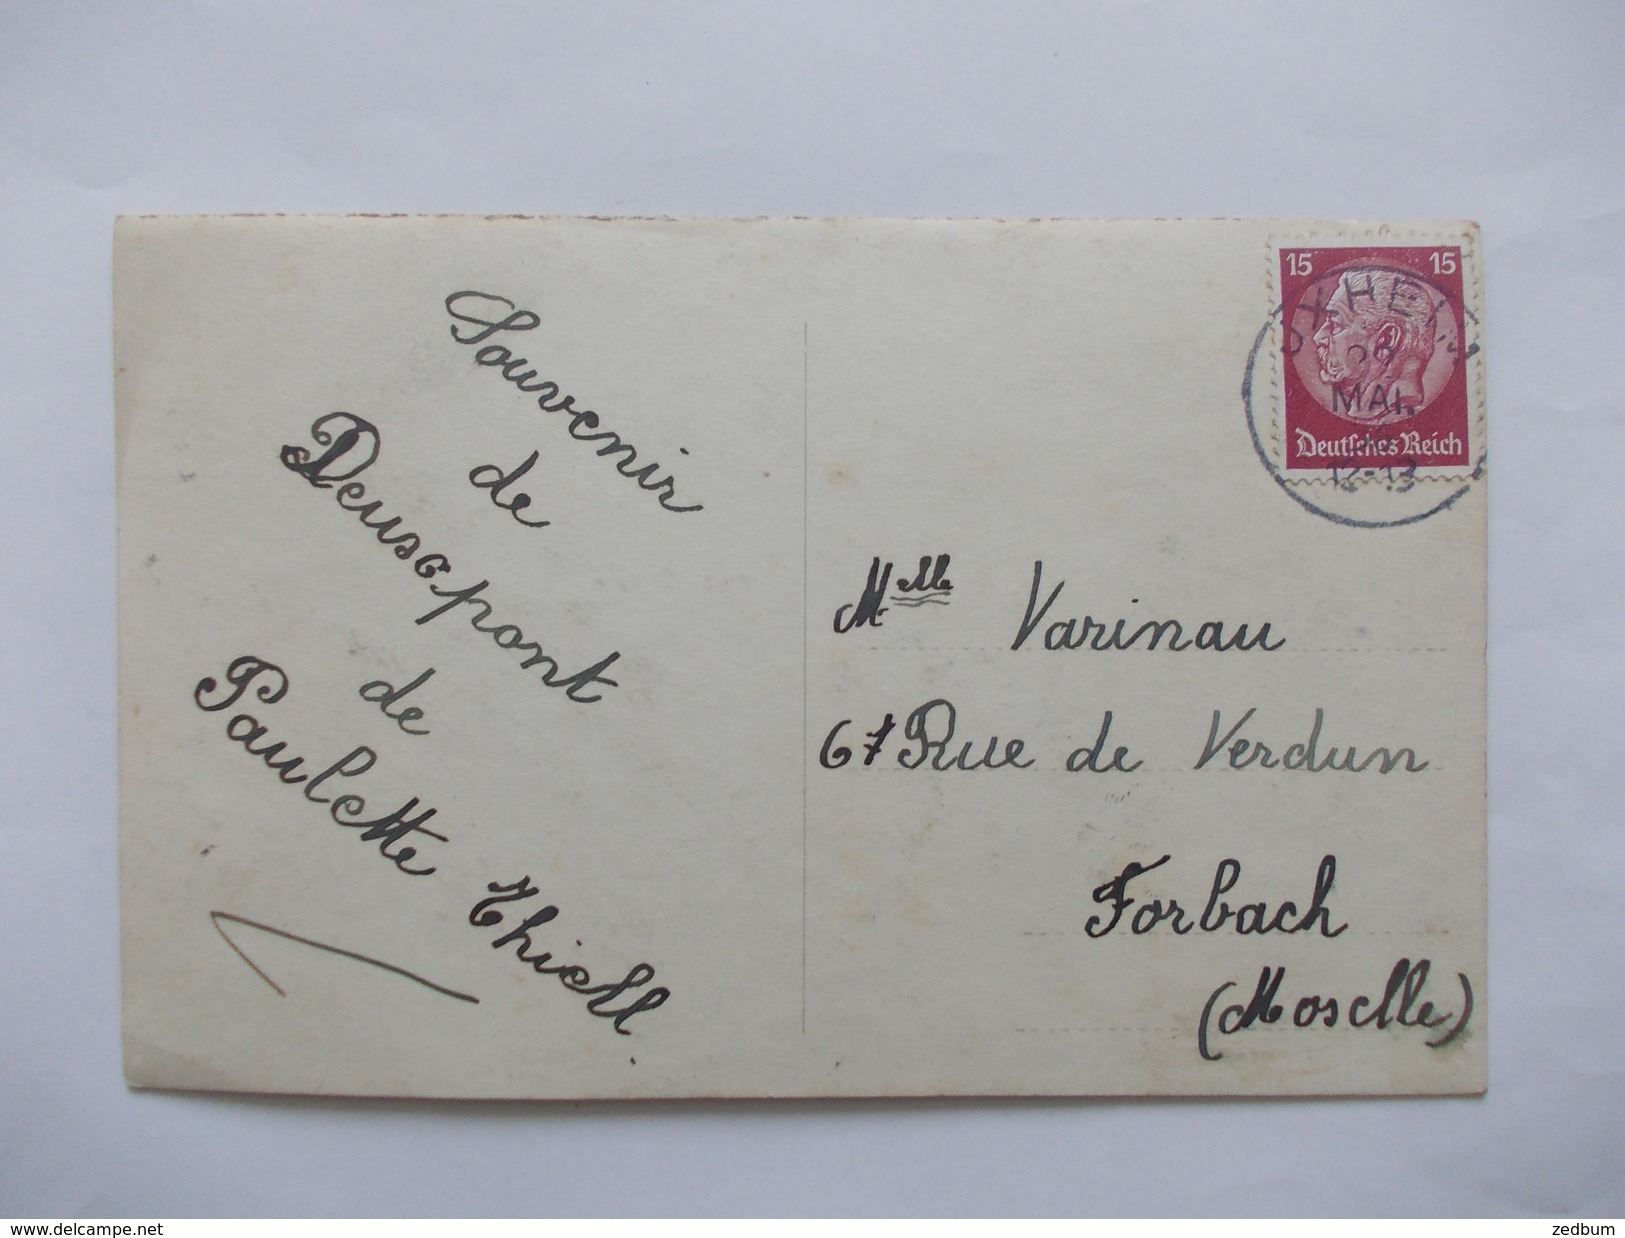 Souvenir
de
Deux ponts
de
Paulette Thiell.
15 15
MAI.
Deutsches Reich
12-13
Mlle Varinau
67 Rue de Verdun
Forbach
(Moselle)
delcampe.net
zedbum